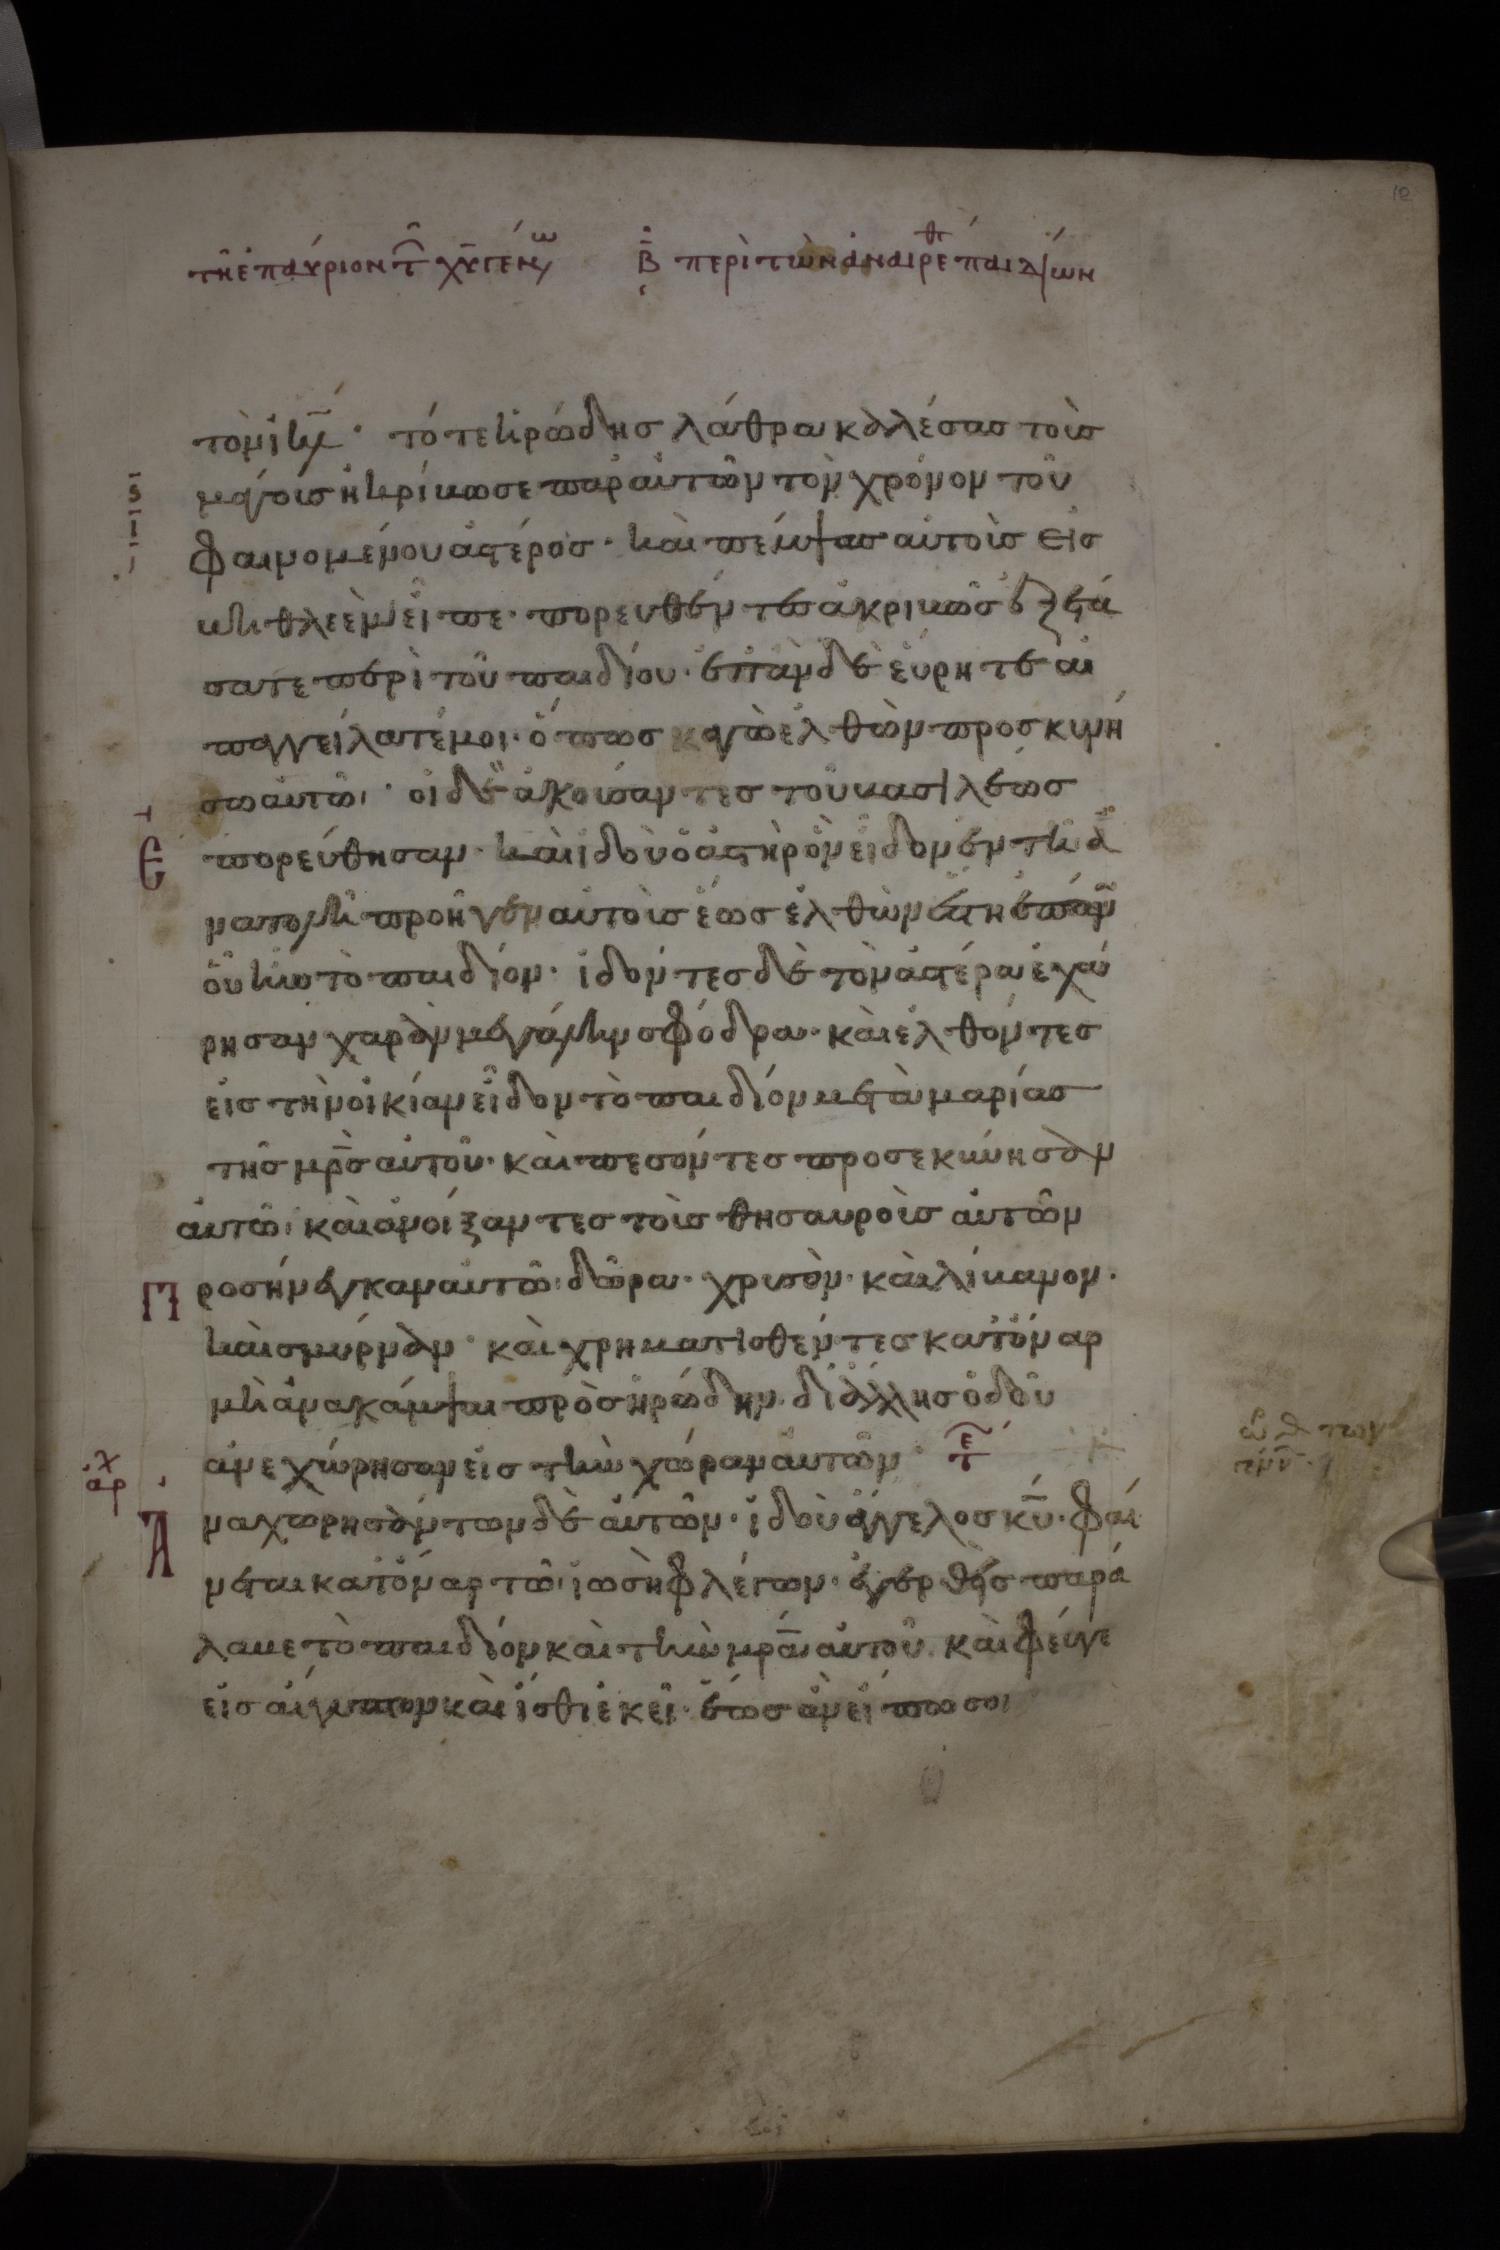 τῆ ἐπαύριον τ̑ χ̅υ γεν ω Β̅ περὶ τῶν ἀναιρεθ παιδίων
τὸν ι̅η̅λ· τότε ἡρώδης λάθρα καλέσας τοὺς
μάγους ἠκρίβωσε παρ' αὐτῶν τὸν χρόνον τοῦ
φαινομένου ἀστέρος· καὶ πέμψας αὐτοὺς εἰς
βηθλεὲμ εἶπε· πορευθέντες ἀκριβῶς ἐξετά
σατε περὶ τοῦ παιδίου· ἐπὰν δὲ εὕρητε ἀ
παγγείλατέ μοι· ὅπως κἀγὼ ἐλθὼν προσκυνή
σω αὐτῶ· οἱ δὲ ἀκούσαντες τοῦ βασιλέως
ἐ πορεύθησαν· καὶ ἰδοὺ ὁ ἀστὴρ ὃν εἶδον ἐν τῆ ἀ
νατολῆ προῆγεν αὐτοὺς ἕως ἐλθὼν ἔστη ἐπάνω
οὗ ἦν τὸ παιδίον· ἰδόντες δὲ τὸν ἀστέρα ἐχά
ρησαν χαρὰν μεγάλην σφόδρα· καὶ ἐλθόντες
εἰς τὴν οἰκίαν εἶδον τὸ παιδίον μετὰ μαρίας
τῆς μ̅ρ̅ς αὐτοῦ· καὶ πεσόντες προσεκύνησαν
αὐτῶ· καὶ ἀνοίξαντες τοὺς θησαυροὺς αὐτῶν
Π ροσήνεγκαν αὐτῶ δῶρα· χρυσὸν· καὶ λίβανον·
καὶ σμύρναν· καὶ χρηματισθέντες κατ' ὄναρ
μὴ ἀνακάμψαι πρὸς ἡρώδην· δι' ἄλλης ὁδοῦ
ἀνεχώρησαν εἰς τὴν χώραν αὐτῶν· τε
Ἀ ναχωρησάντων δὲ αὐτῶν· ἰδοὺ ἄγγελος κ̅υ· φαί
νεται κατ' ὄναρ τῶ ἰωσὴφ λέγων· ἐγερθεὶς παρά
λαβε τὸ παιδίον καὶ τὴν μ̅ρ̅α αὐτοῦ· καὶ φεῦγε
εἰς αἴγυπτον καὶ ἴσθι ἐκεῖ· ἕως ἂν εἴπω σοι
αρχ
12